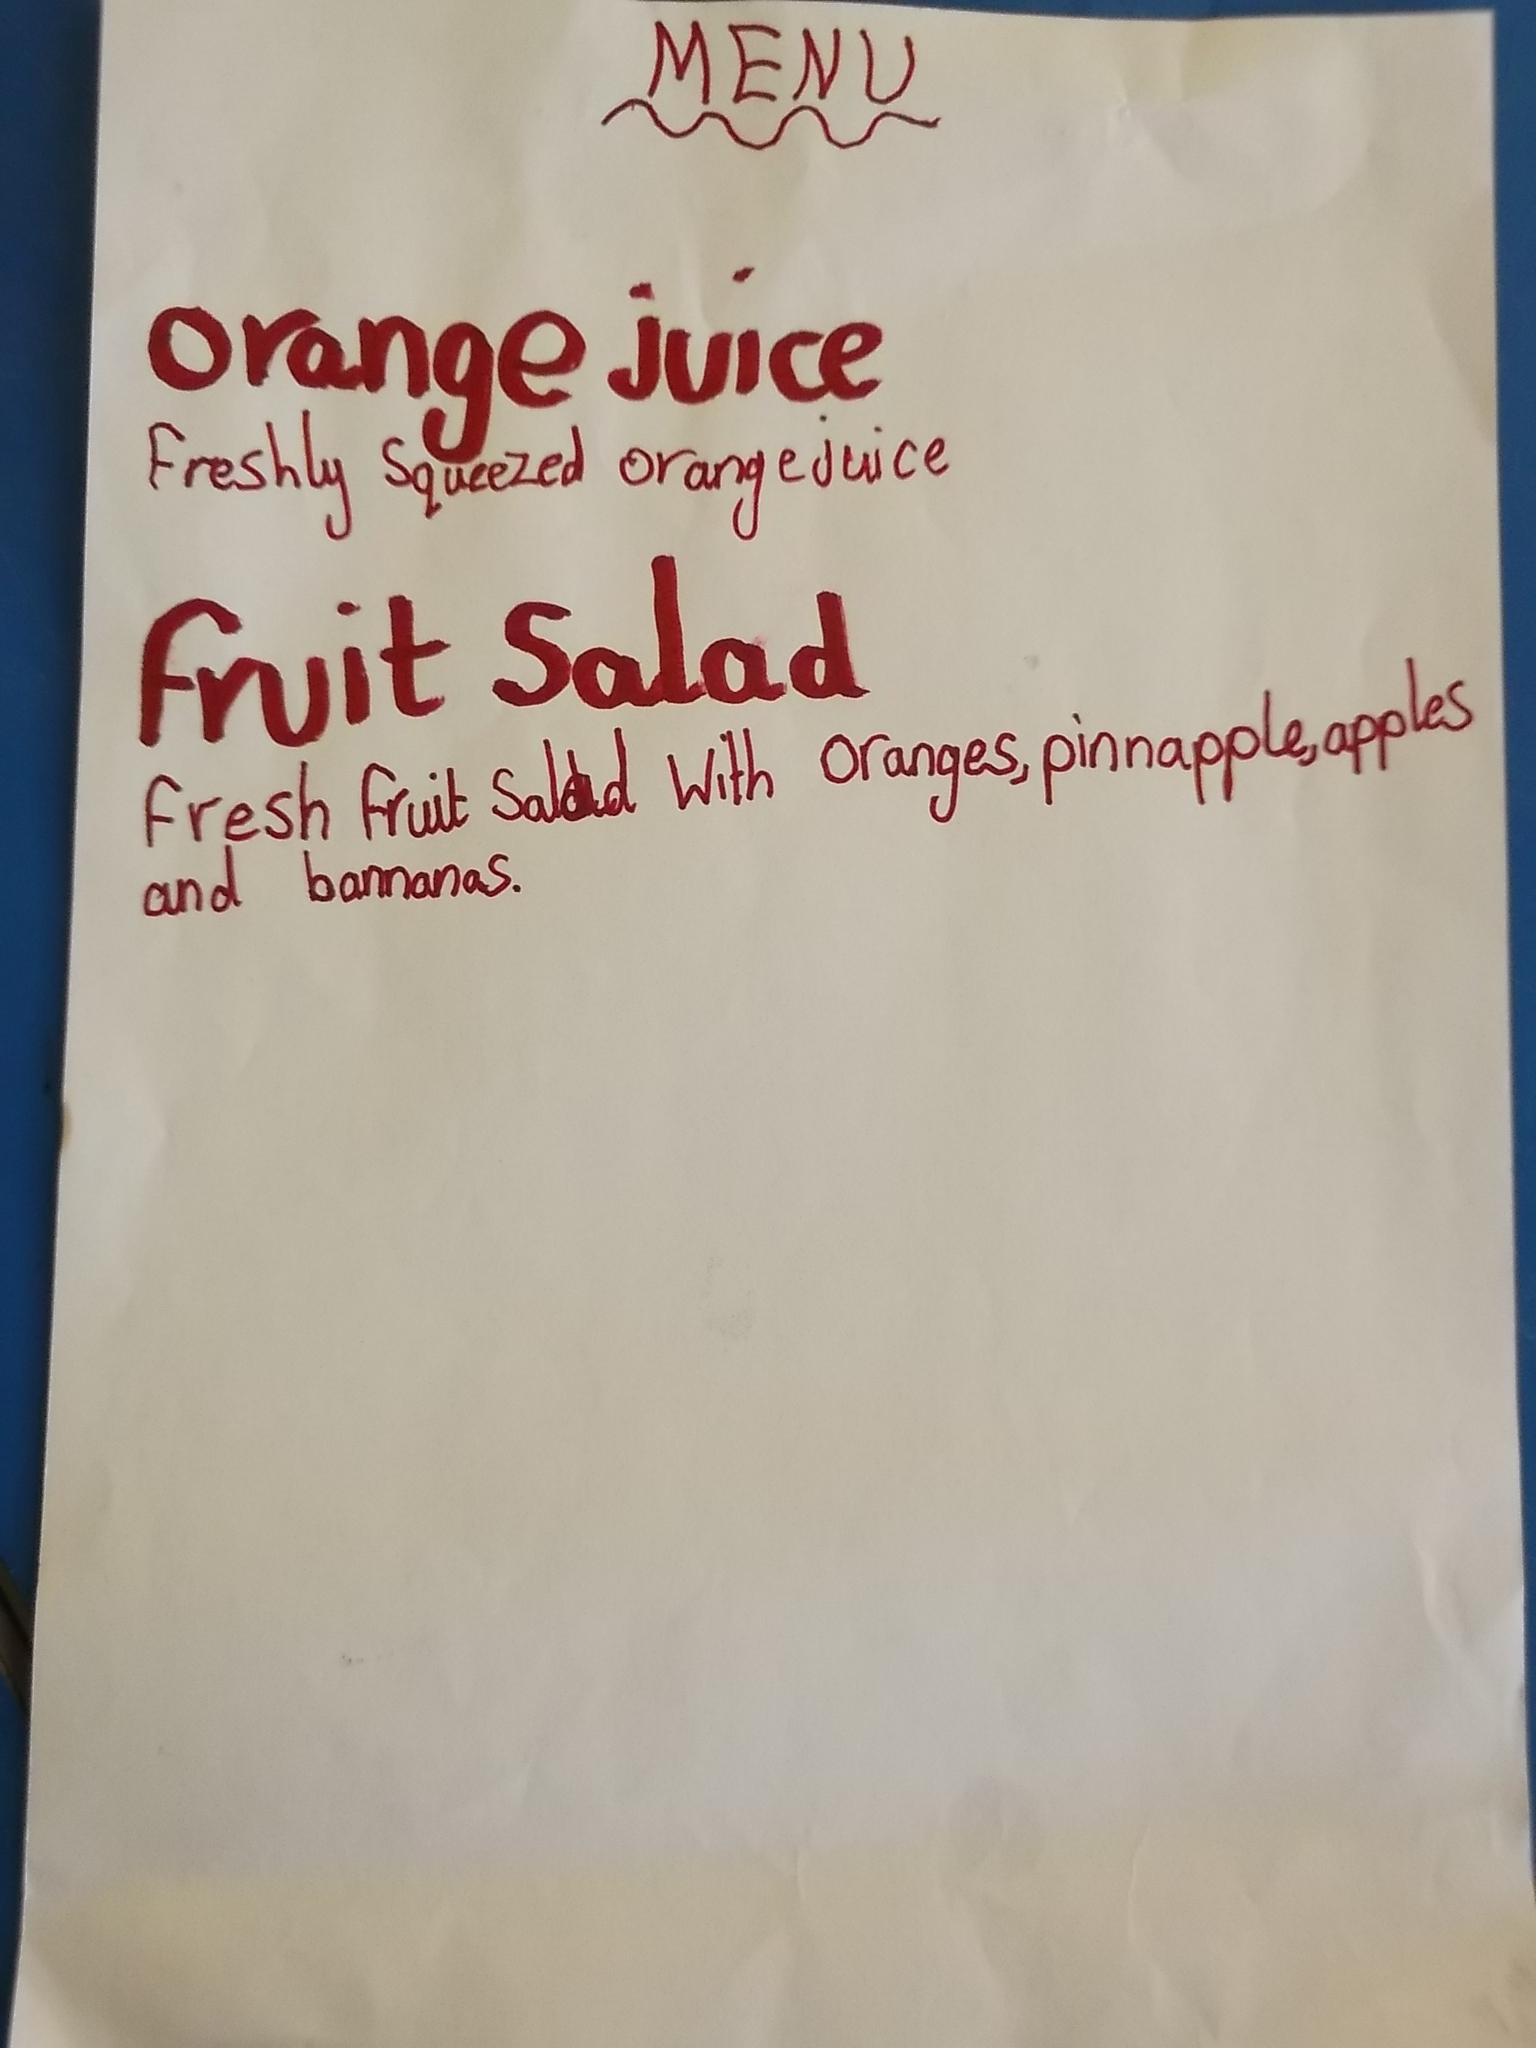 MENU
orange juice
Freshly Squeezed orangejuice
Fruit Salad
Fresh Fruit Salad With Oranges, pinnapple, apples
and bannanas.